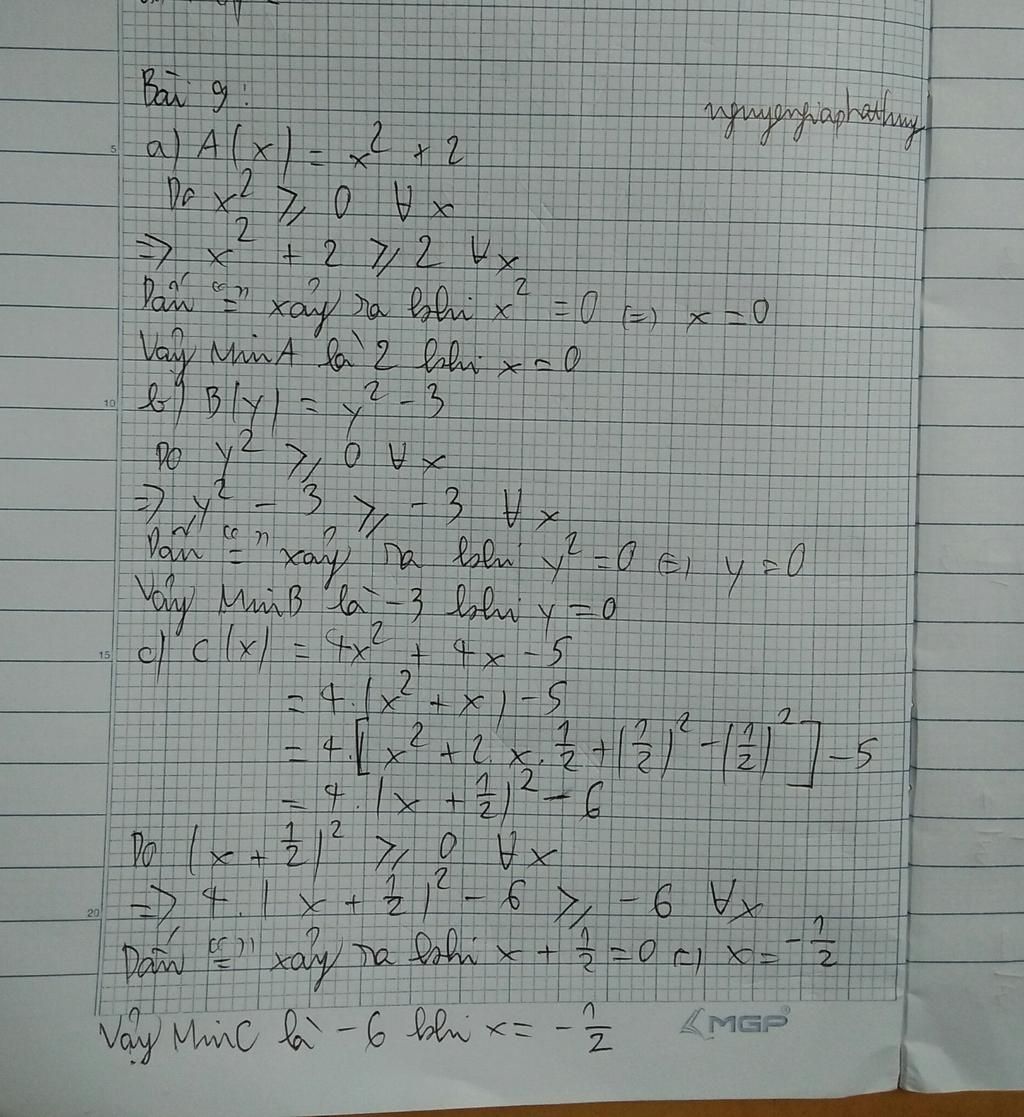 Bài 9:
nguyengiaphathuy
5
a) A(x) = x² + 2
Do x² ≥ 0 ∀x
=> x² + 2 ≥ 2 ∀x
Dấu "=" xảy ra khi x² = 0 (=) x = 0
Vậy MinA là 2 khi x = 0
10
b) B(y) = y² - 3
Do y² ≥ 0 ∀x
=> y² - 3 ≥ -3 ∀x
Dấu "=" xảy ra khi y² = 0 (=) y = 0
Vậy MinB là -3 khi y = 0
15
c) C(x) = 4x² + 4x - 5
= 4.(x² + x) - 5
= 4.[x² + 2.x.1/2 + (1/2)² - (1/2)²] - 5
= 4.(x + 1/2)² - 6
Do (x + 1/2)² ≥ 0 ∀x
20
=> 4.(x + 1/2)² - 6 ≥ -6 ∀x
Dấu "=" xảy ra khi x + 1/2 = 0 (=) x = -1/2
Vậy MinC là -6 khi x = -1/2
MGP